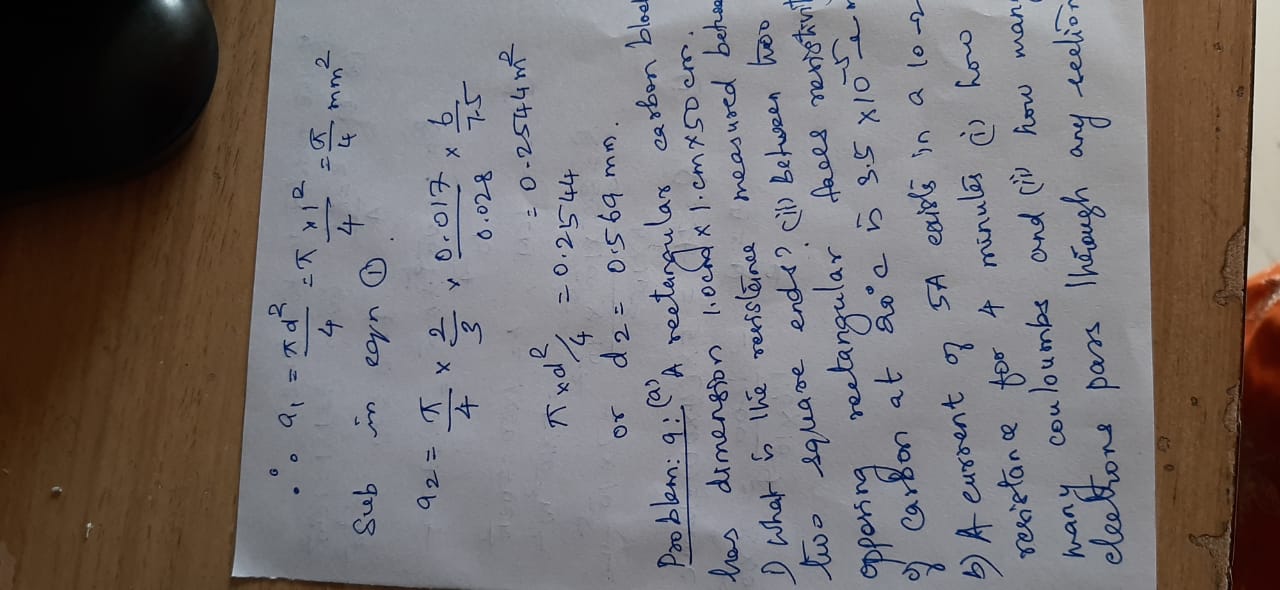 ∴ a1 = πd²/4 = π×1²/4 = π/4 mm²
Sub in eqn ①.
a2 = π/4 × 2/3 × 0.017/0.028 × 6/7.5
= 0.2544 m²
π×d²/4 = 0.2544
or d2 = 0.569 mm.
Problem: 9: (a) A rectangular carbon block
has dimension 1.0cm × 1.cm×50cm.
i) What is the resistance measured between
two square ends? (ii) between two
opposing rectangular faces resistivity
of carbon at 20°C is 3.5 ×10⁻⁵
b) A current of 5A exists in a 10-Ω
resistance for 4 minutes (i) how
many couloumbs and (ii) how many
electrons pass through any section